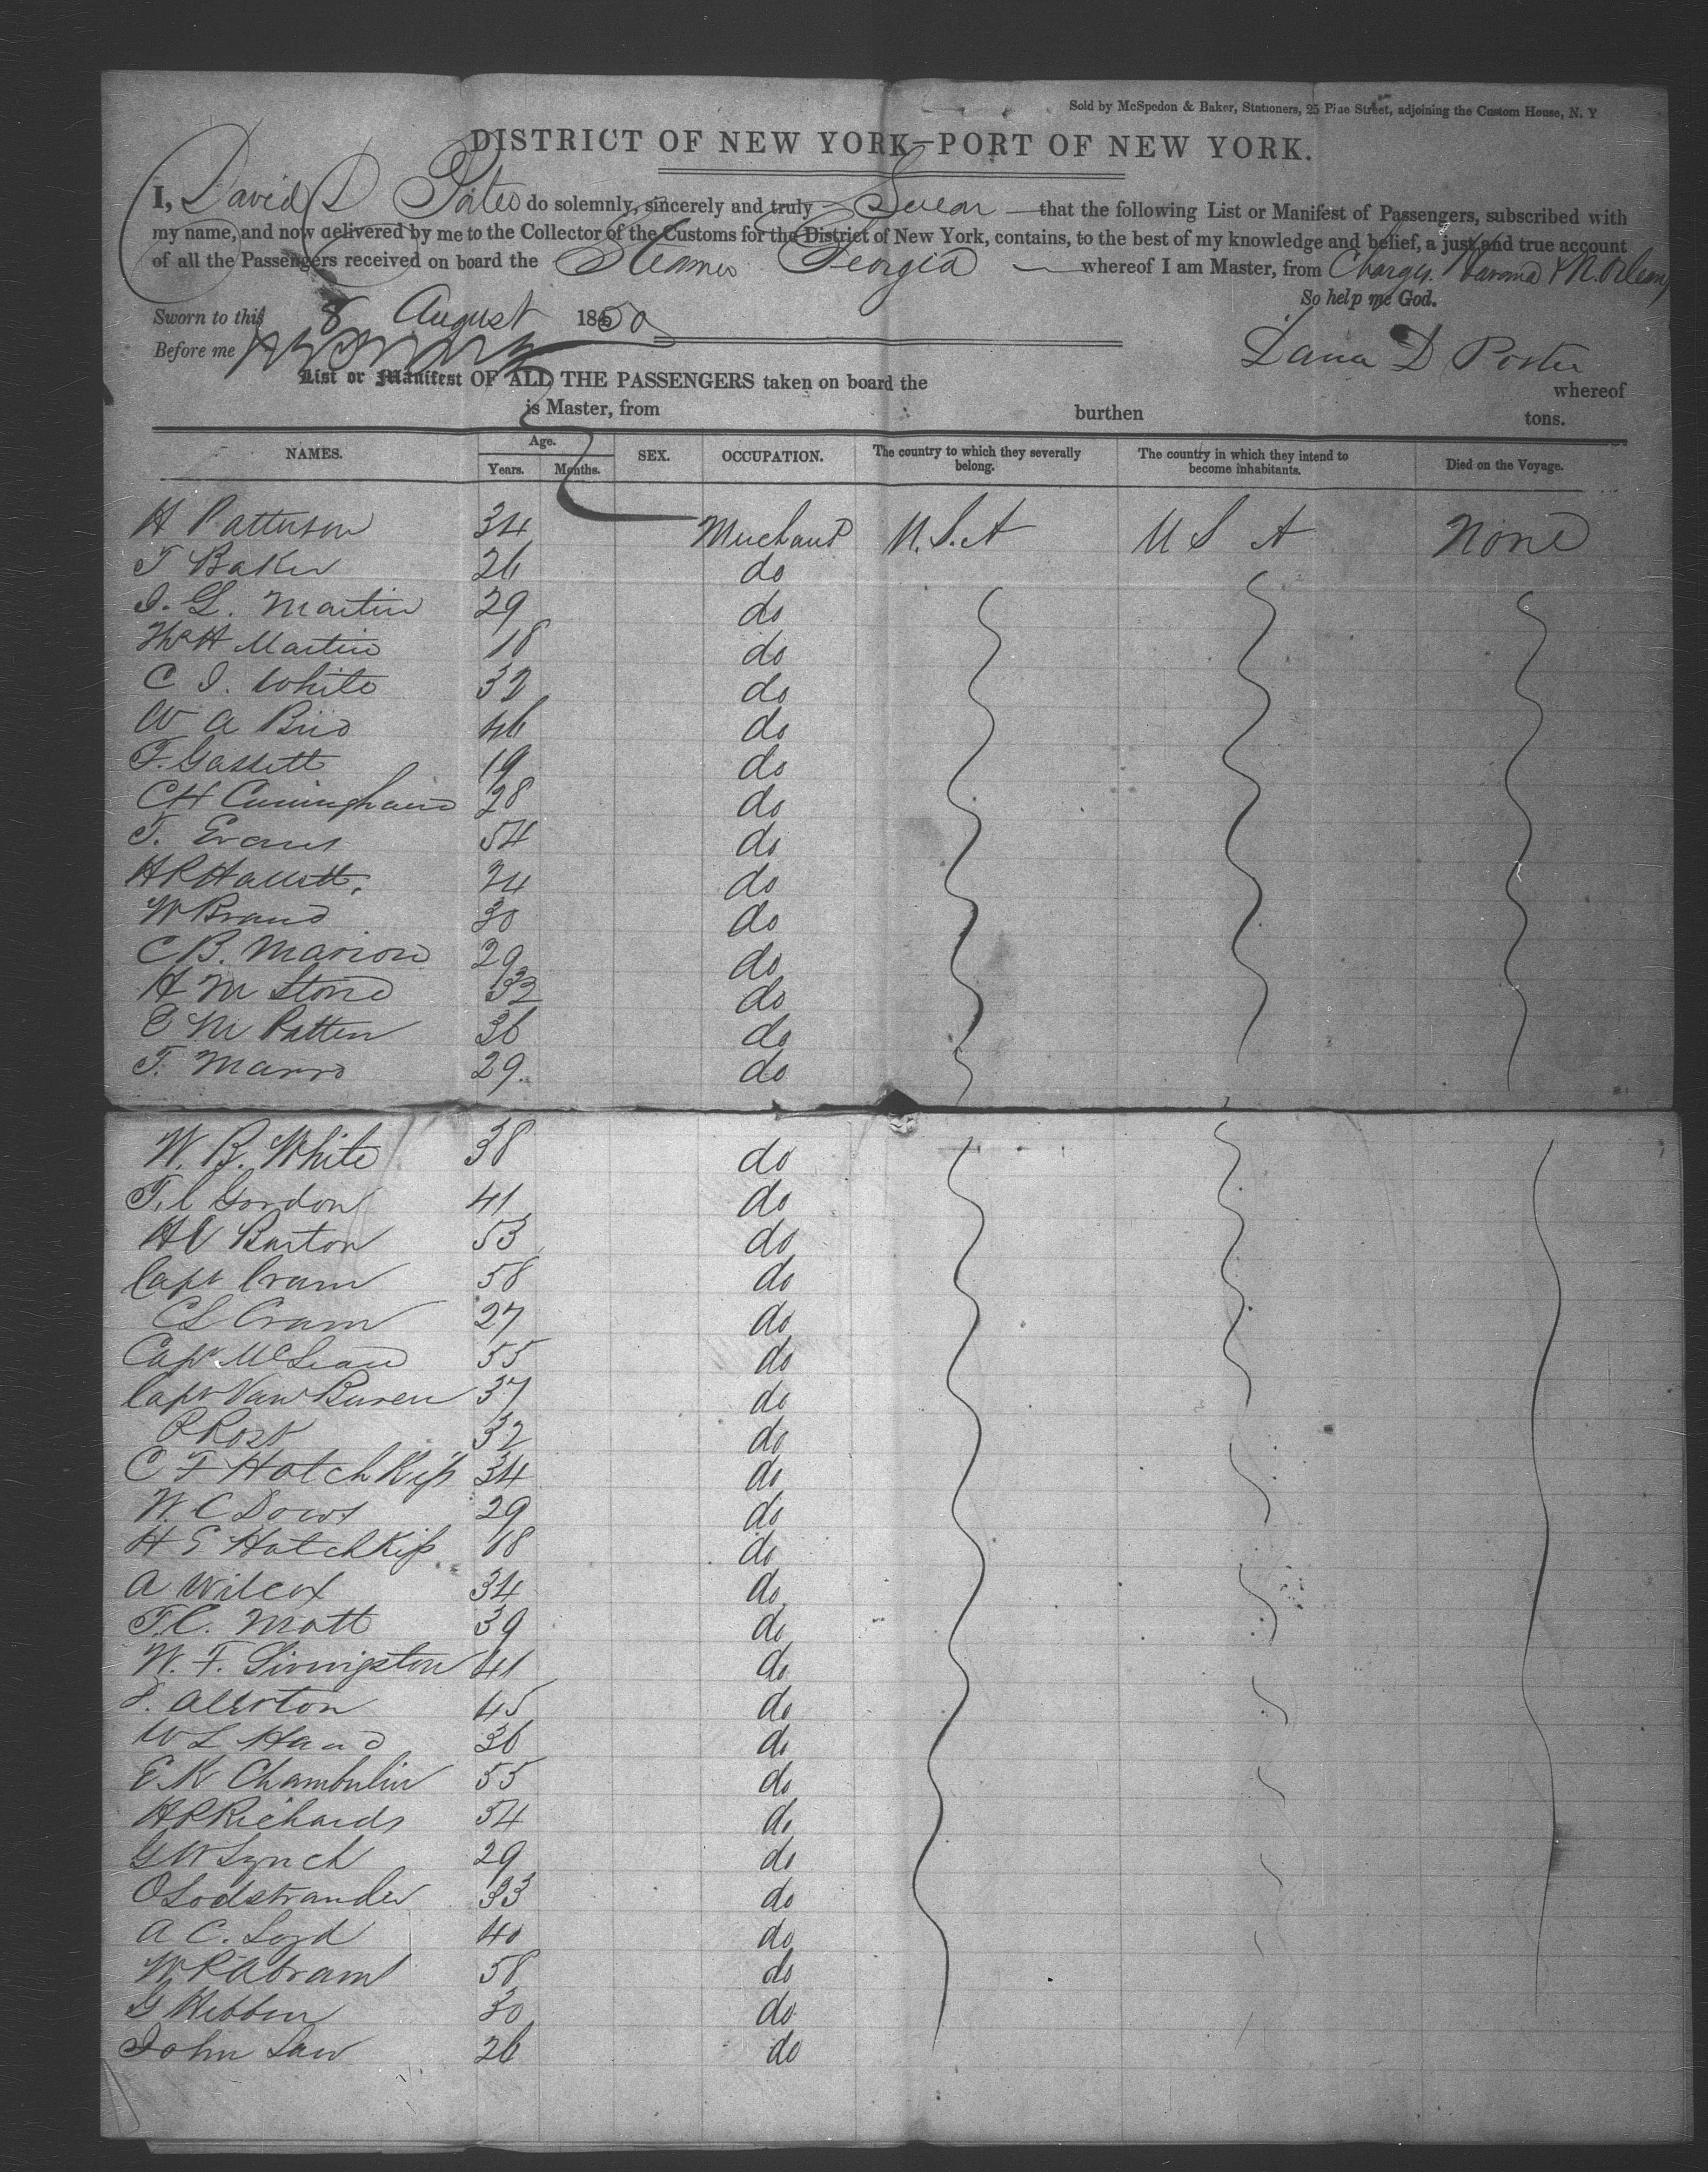 Sold by McSpedon & Baker, Stationers, 25 Pine Street, adjoining the Custom House, N. Y
DISTRICT OF NEW YORK—PORT OF NEW YORK.
I, David D Porter do solemnly, sincerely and truly Swear that the following List or Manifest of Passengers, subscribed with
my name, and now delivered by me to the Collector of the Customs for the District of New York, contains, to the best of my knowledge and belief, a just and true account
of all the Passengers received on board the Steamer Georgia whereof I am Master, from Chagres. Havana & N. Orleans
So help me God.
Sworn to this 8 August 1850
Before me
David D Porter
List or Manifest OF ALL THE PASSENGERS taken on board the whereof
is Master, from burthen tons.
NAMES. Age. Years. Months. SEX. OCCUPATION. The country to which they severally belong. The country in which they intend to become inhabitants. Died on the Voyage.
H Patterson 34 Merchant U.S.A U S A None
T Baker 26 do
J. L. Martin 29 do
Wm H Martin 18 do
C J. White 32 do
W A Bird 46 do
F. Gassett 19 do
C H Cuningham 28 do
T. Evans 54 do
H R Hallett. 24 do
W Brand 30 do
C B. Marion 29 do
H M Stone 32 do
E M Patten 36 do
T. Mann 29. do
W. B. White 38 do
T. C Gordon 41 do
H C Barton 53 do
Capt Cram 58 do
C L Cram 27 do
Capt McLean 55 do
Capt Van Buren 37 do
P Rost 32 do
C F Hotchkiss 34 do
W. C Dows 29 do
H E Hotchkiss 18 do
A Wilcox 34 do
T. C. Mott 39 do
W. F. Livingston 41 do
Allerton 45 do
W L Hand 36 do
E K Chamberlin 55 do
H R Richards 54 do
G W Lynch 29 do
O Lodstrander 33 do
A C. Loyd 40 do
W R Abram 58 do
G Hebben 30 do
John Law 26 do